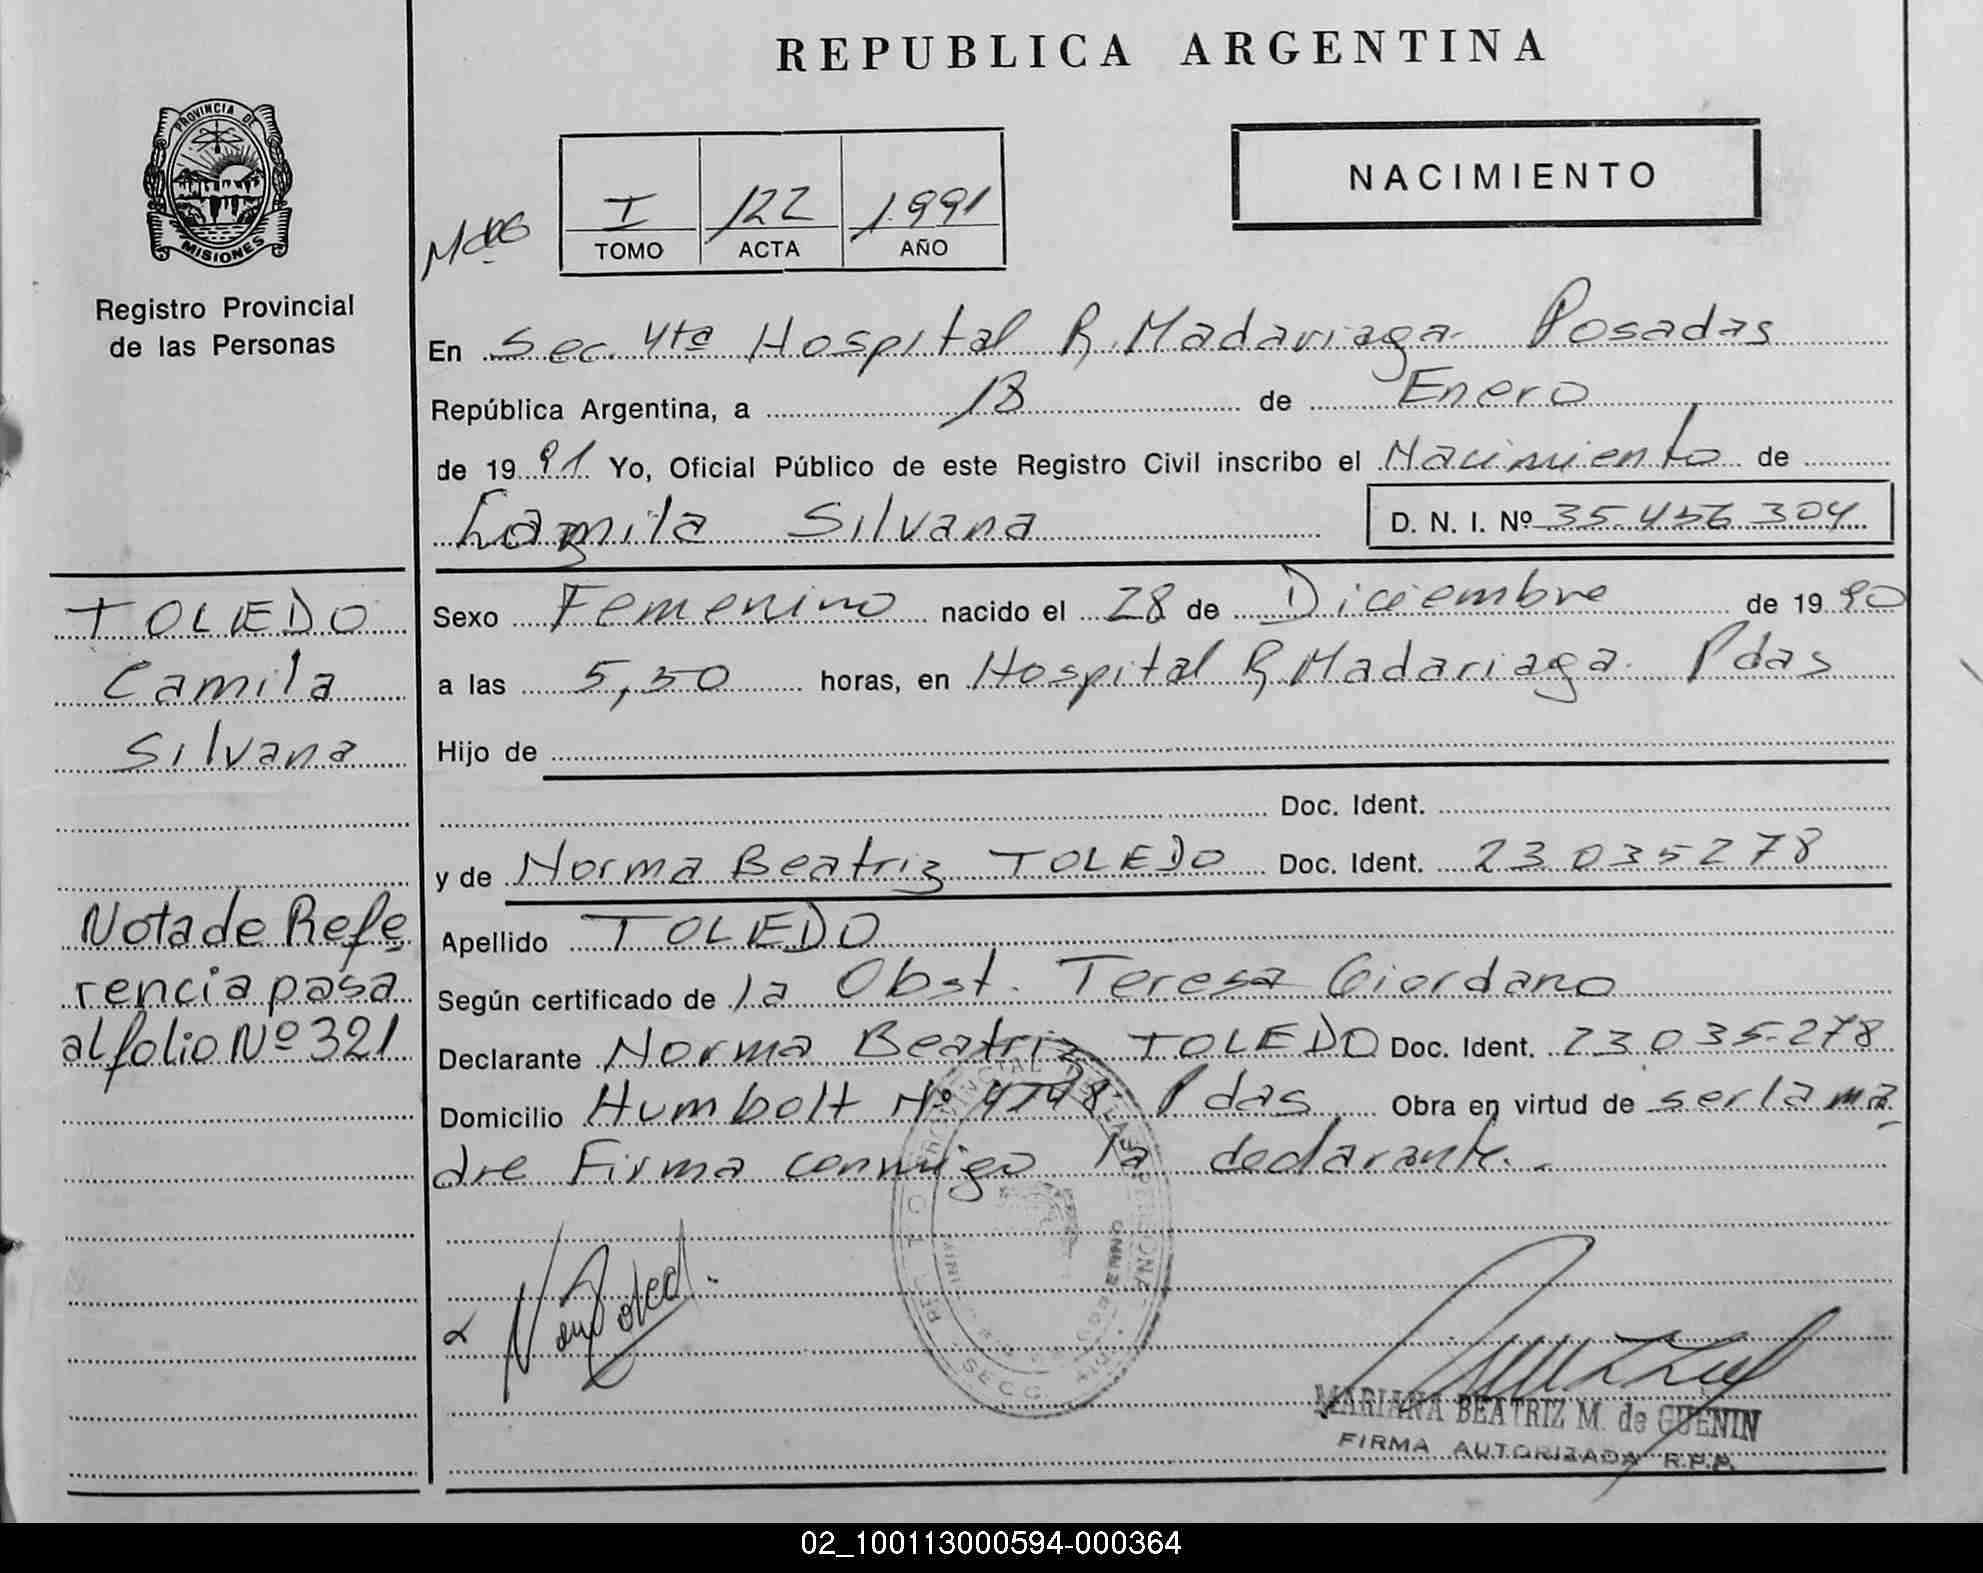 REPUBLICA ARGENTINA
PROVINCIA DE
MISIONES
Registro Provincial
de las Personas
NACIMIENTO
I 122 1.991
TOMO ACTA AÑO
En Sec. 4ta Hospital R. Madariaga- Posadas
República Argentina, a 18 de Enero
de 19 91 Yo, Oficial Público de este Registro Civil inscribo el Nacimiento de
Camila Silvana D. N. I. Nº 35.456.304
TOLEDO
Camila
Silvana
Sexo Femenino nacido el 28 de Diciembre de 19 90
a las 5,30 horas, en Hospital R. Madariaga. Pdas
Hijo de
Doc. Ident.
y de Norma Beatriz TOLEDO Doc. Ident. 23.035.278
Nota de Refe
rencia pasa
al folio Nº 321
Apellido TOLEDO
Según certificado de la Obst. Teresa Giordano
Declarante Norma Beatriz TOLEDO Doc. Ident. 23.035.278
Domicilio Humbolt Nº 4748 Pdas Obra en virtud de ser la ma
dre Firma conmigo la declarante.
MARIANA BEATRIZ M. de GUENIN
FIRMA AUTORIZADA R.P.P.
02_100113000594-000364